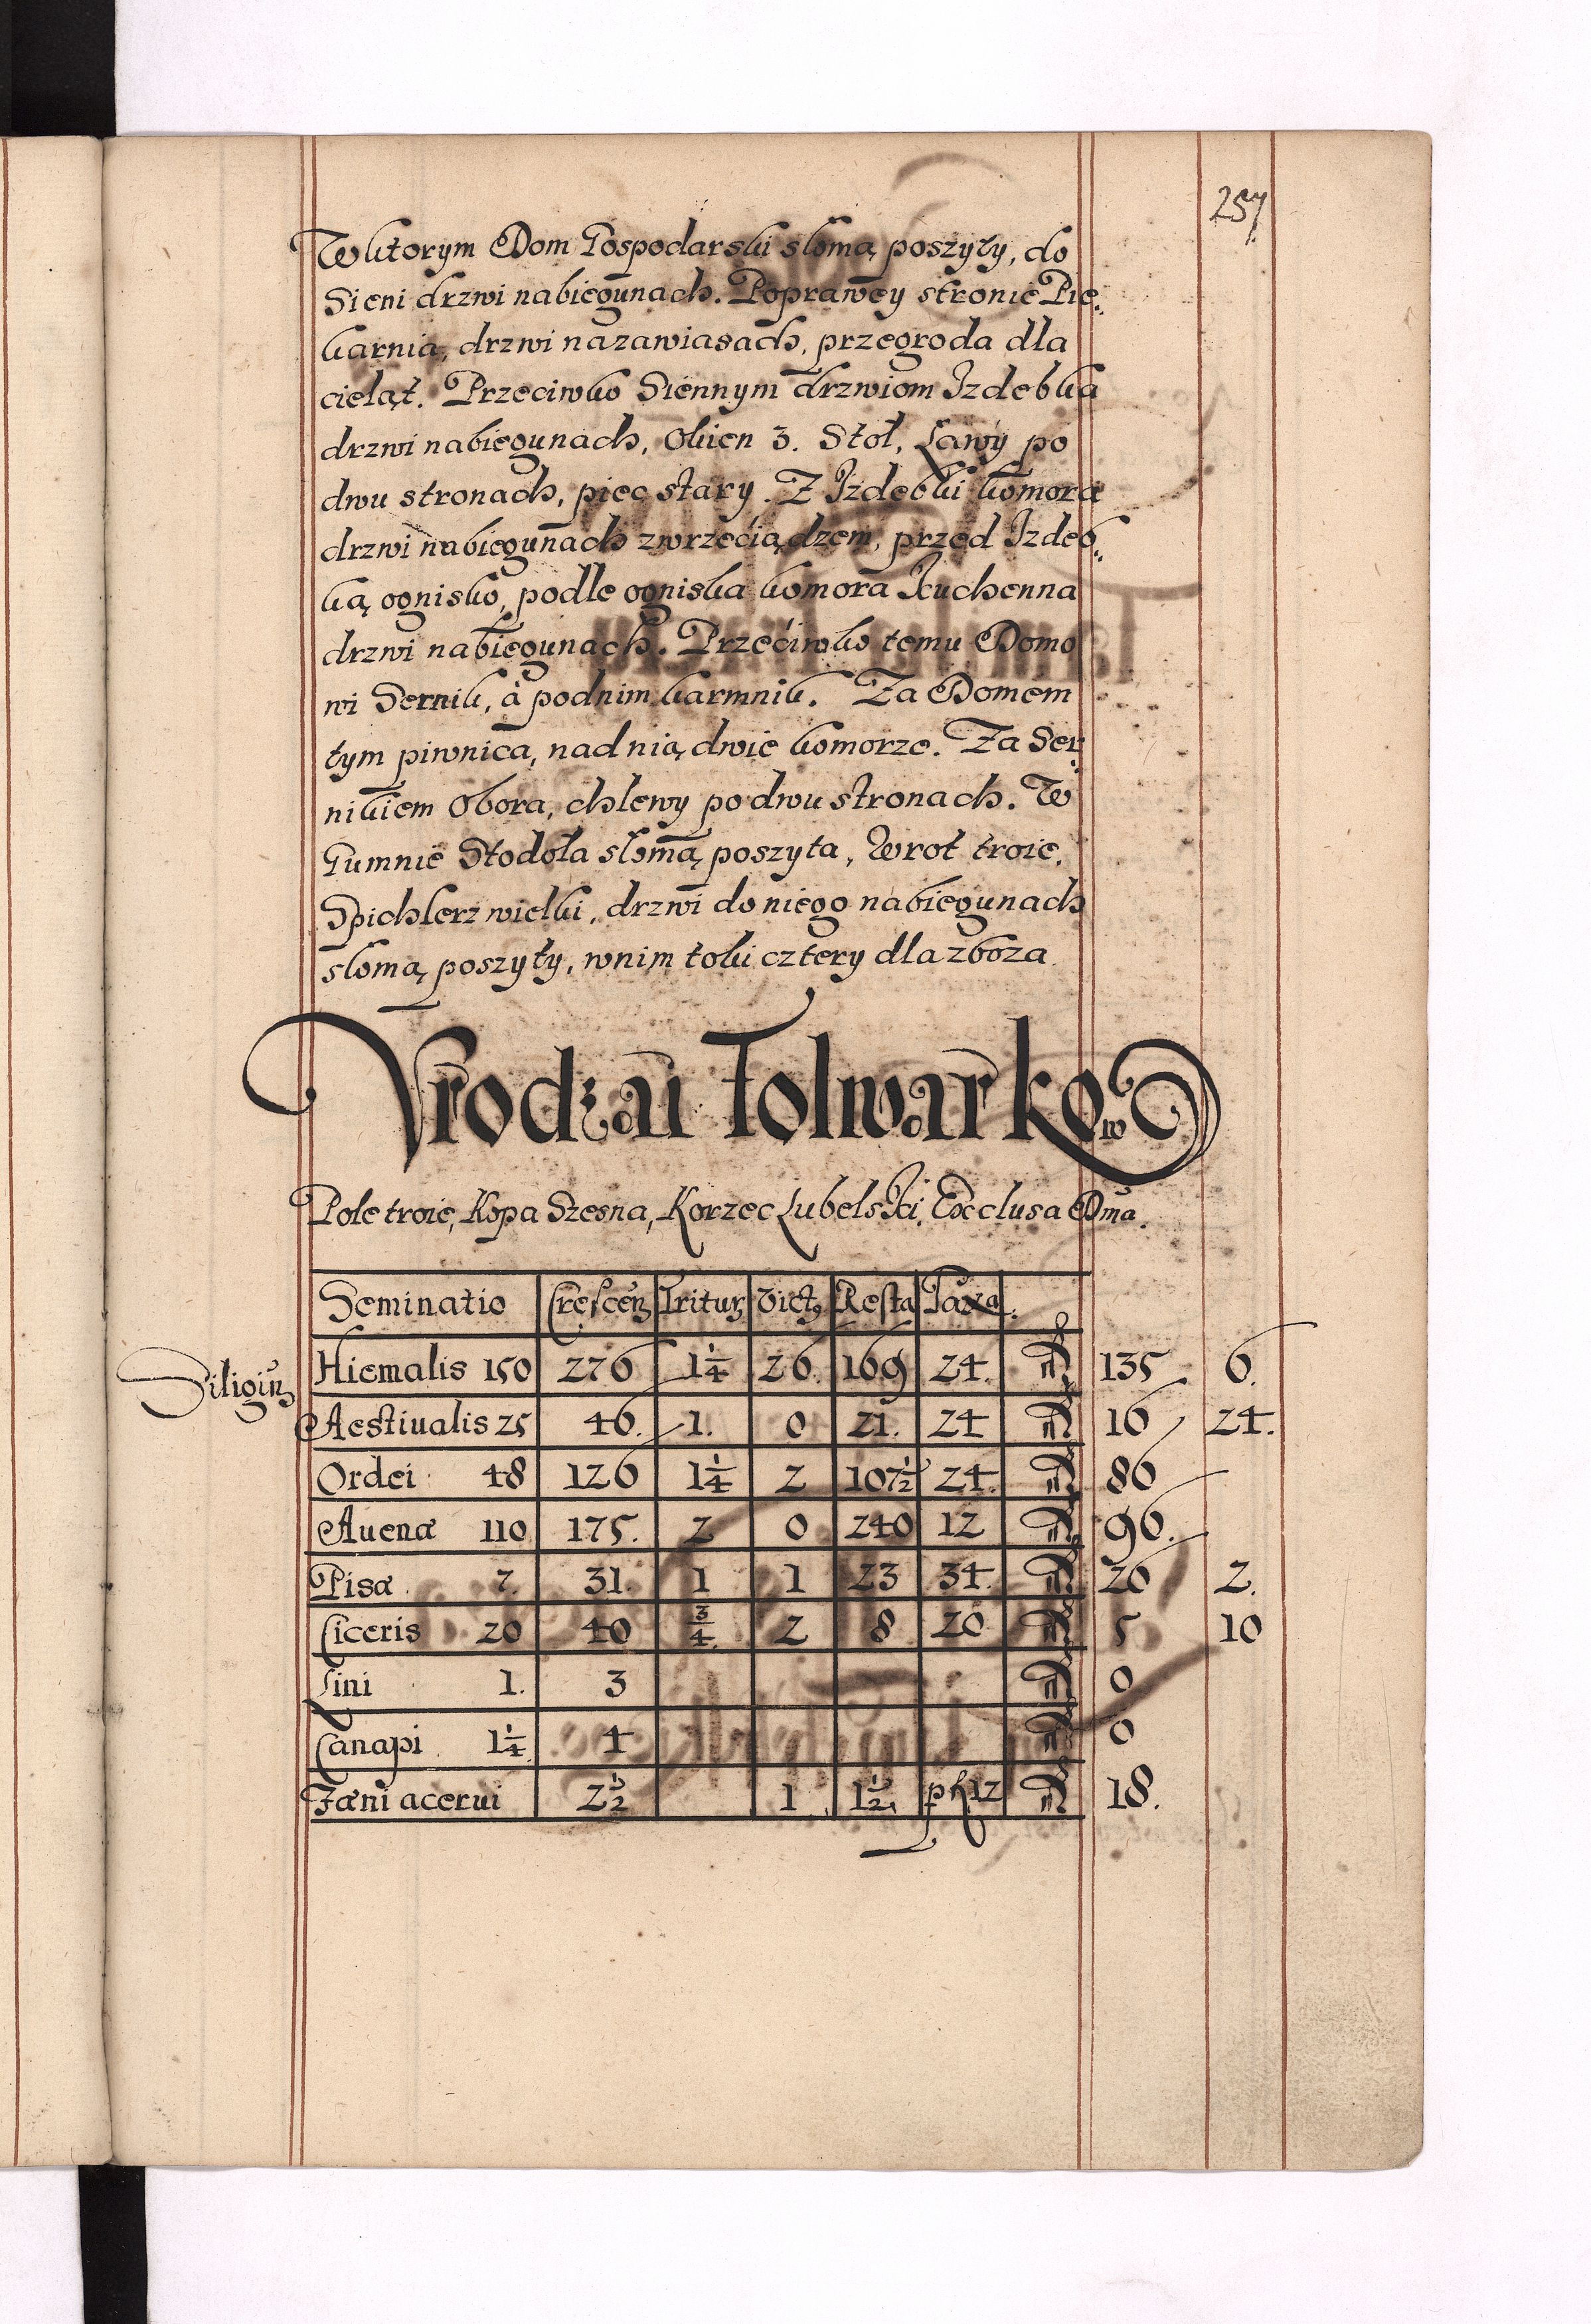 257
Wktorym Dom Gospodarski słomą poszyty, do
Sieni drzwi nabiegunach. Poprawey stronie Pie„
karnia, drzwi nazawiasach, przegroda dla
cieląt. Przeciwko Siennym drzwiom Izdebka
drzwi nabiegunach, Okien 3. Stoł, Ławy po
dwu stronach, piec stary. Z Izdebki komora
drzwi nabiegunach zwrzeciądzem, przed Izdeb„
ką ognisko, podle ogniska komora Kuchenna
drzwi nabiegunach. Przeciwko temu Domo
wi Sernik, a podnim karmnik. Za Domem
tym piwnica, nad nią dwie komorze. Za Ser„
nikiem Obora, chlewy po dwu stronach. W
Gumnie Stodoła słomą poszyta, Wrot troie.
Spichlerz wielki, drzwi do niego nabiegunach
słomą poszyty, wnim tok cztery dla zboza
Vrodzai Folwarkow
Pole troie, Kopa Szesna, Korzec Lubelski, Exclusa Dma.
Seminatio Crescen Tritur Vict9 Resta Taxa.
Siligin Hiemalis 150 276 1¼ 26. 169 24. 135 6.
Aestiualis 25 46. 1. 0 21. 24 16 24.
Ordei 48 126 1¼ 2 107½ 24. 86
Auenæ 110 175. 2 0 240 12 96.
Pisæ 7. 31. 1 1 23 34. 20 2.
Ciceris 20 40 ¾. 2 8 20 5 10
Lini 1. 3 0
Canapi 1¼ 4 0
Fæni acerui 2½ 1 1½ 12 18.